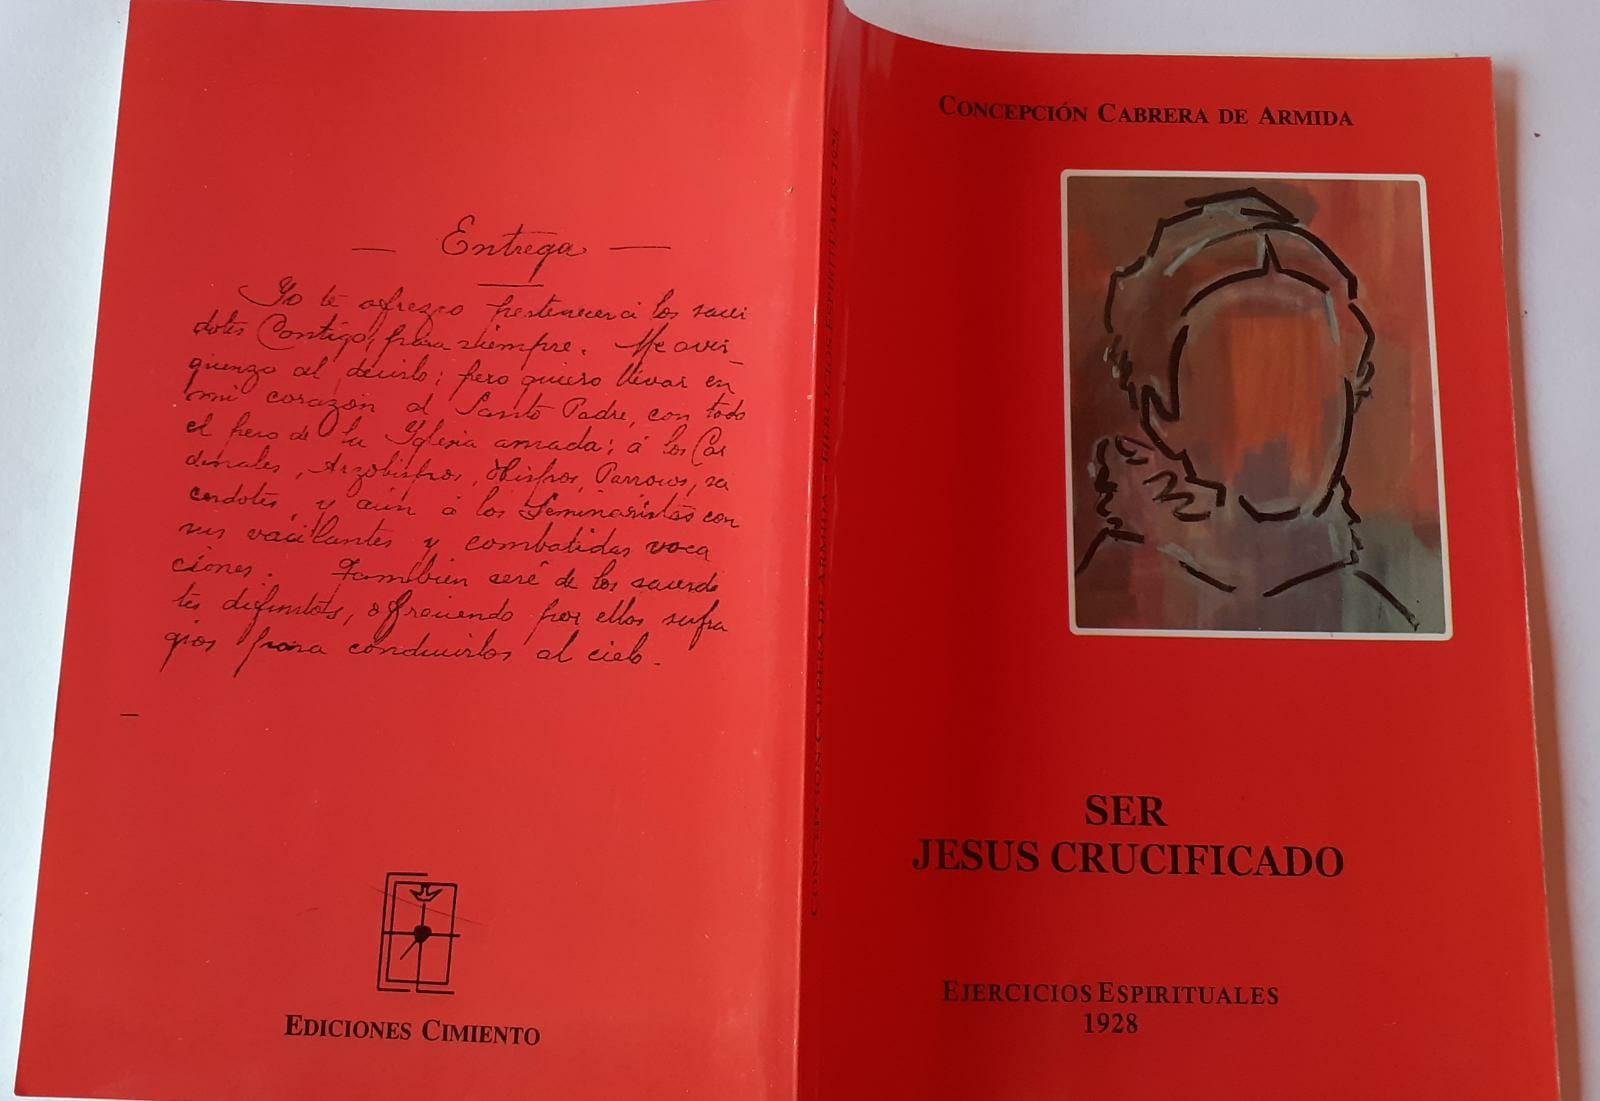 — Entrega —
Yo te ofrezco pertenecer á los sacer
dotes Contigo, para siempre. Me aver_
güenzo al decirlo; pero quiero llevar en
mi corazón al Santo Padre, con todo
el peso de la Yglesia amada; á los Car
denales, Arzobispos, Obispos, Parrocos, sa
cerdotes, y aún á los Seminaristas con
sus vacilantes y combatidas voca
ciones. También seré de los sacerdo
tes difuntos, ofreciendo por ellos sufra
gios para conducirlos al cielo.
EDICIONES CIMIENTO
CONCEPCIÓN CABRERA DE ARMIDA - EJERCICIOS ESPIRITUALES 1928
CONCEPCIÓN CABRERA DE ARMIDA
SER
JESUS CRUCIFICADO
EJERCICIOS ESPIRITUALES
1928